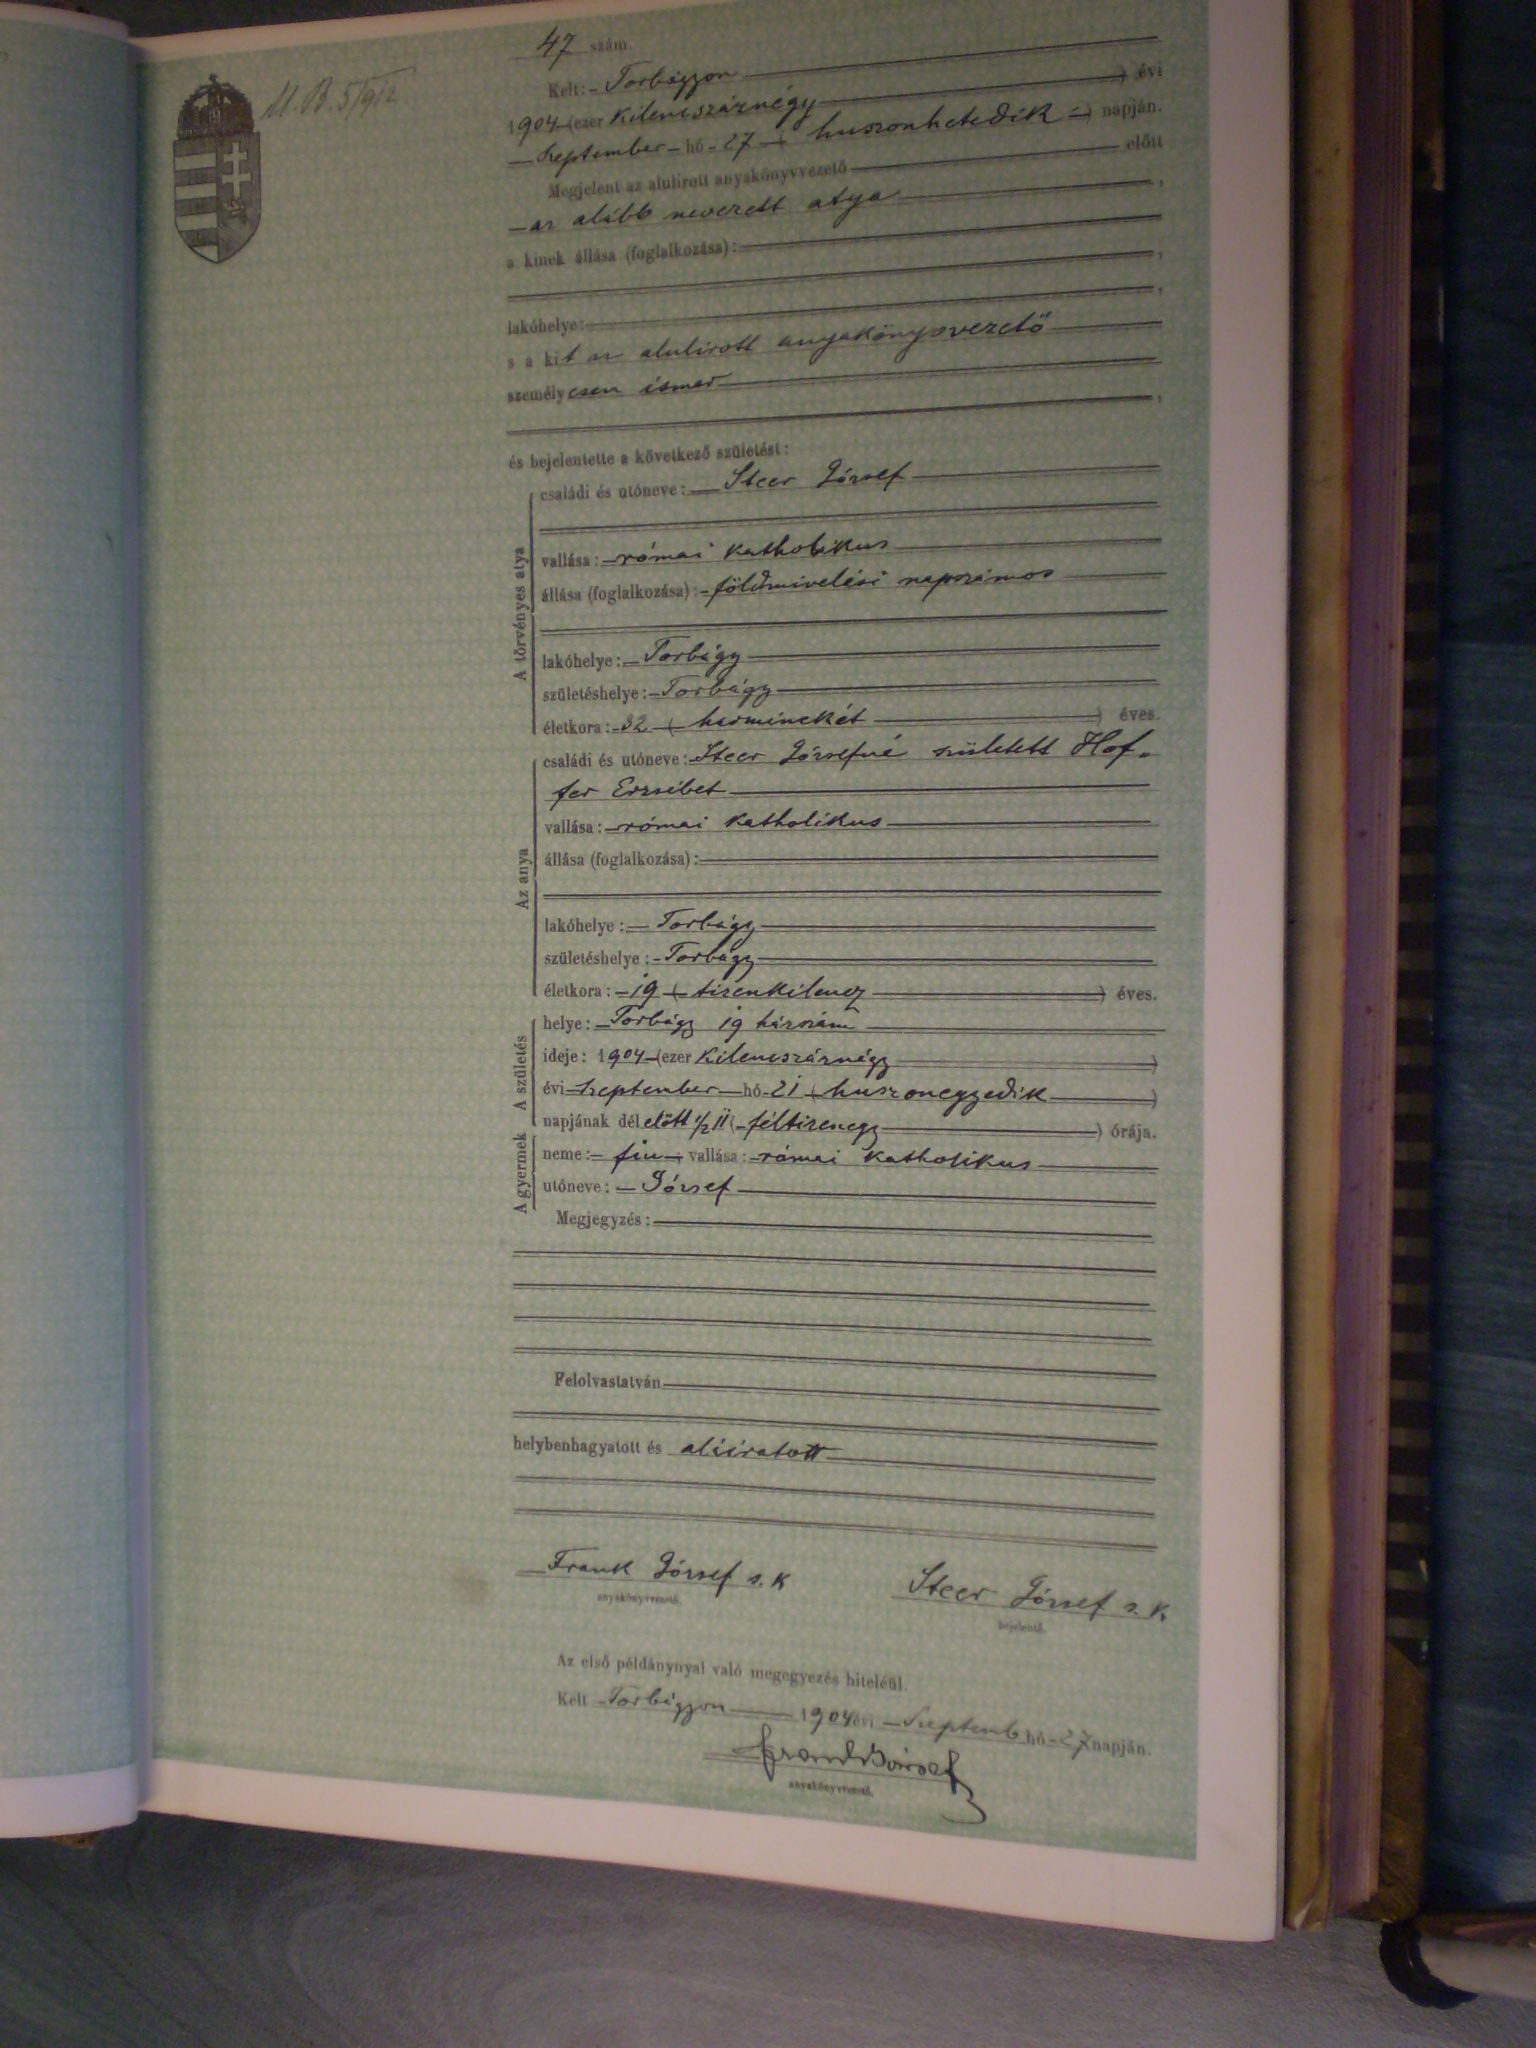 M. B. 5/912.
47 szám.
Kelt: Torbágyon
1904 (ezer kilenczszáznégy) évi
Szeptember hó 27 (huszonhetedik) napján.
Megjelent az alulirott anyakönyvvezető előtt
az alább nevezett atya,
a kinek állása (foglalkozása):
,
lakóhelye: ,
s a kit az alulirott anyakönyvvezető
személyesen ismer
,
és bejelentette a következő születést:
A törvényes atya
családi és utóneve: Steer József
vallása: római katholikus
állása (foglalkozása): földmivelési napszámos
lakóhelye: Torbágy
születéshelye: Torbágy
életkora: 32 (harminckét) éves.
Az anya
családi és utóneve: Steer Józsefné született Hof-
fer Erzsébet
vallása: római katholikus
állása (foglalkozása):
lakóhelye: Torbágy
születéshelye: Torbágy
életkora: 19 (tizenkilencz) éves.
A születés
helye: Torbágy 19 házszám
ideje: 1904 (ezer kilenczszáznégy)
évi Szeptember hó 21 (huszonegyedik)
napjának délelőtt 1/2 11 (féltizenegy) órája.
A gyermek
neme: fiu; vallása: római katholikus
utóneve: József
Megjegyzés:
Felolvastatván
helybenhagyatott és aláiratott
Frank József s. k
anyakönyvvezető.
Steer József s. k.
bejelentő.
Az első példánynyal való megegyezés hiteléül.
Kelt Torbágyon 1904 évi Szeptemb hó 27 napján.
Frank József
anyakönyvvezető.